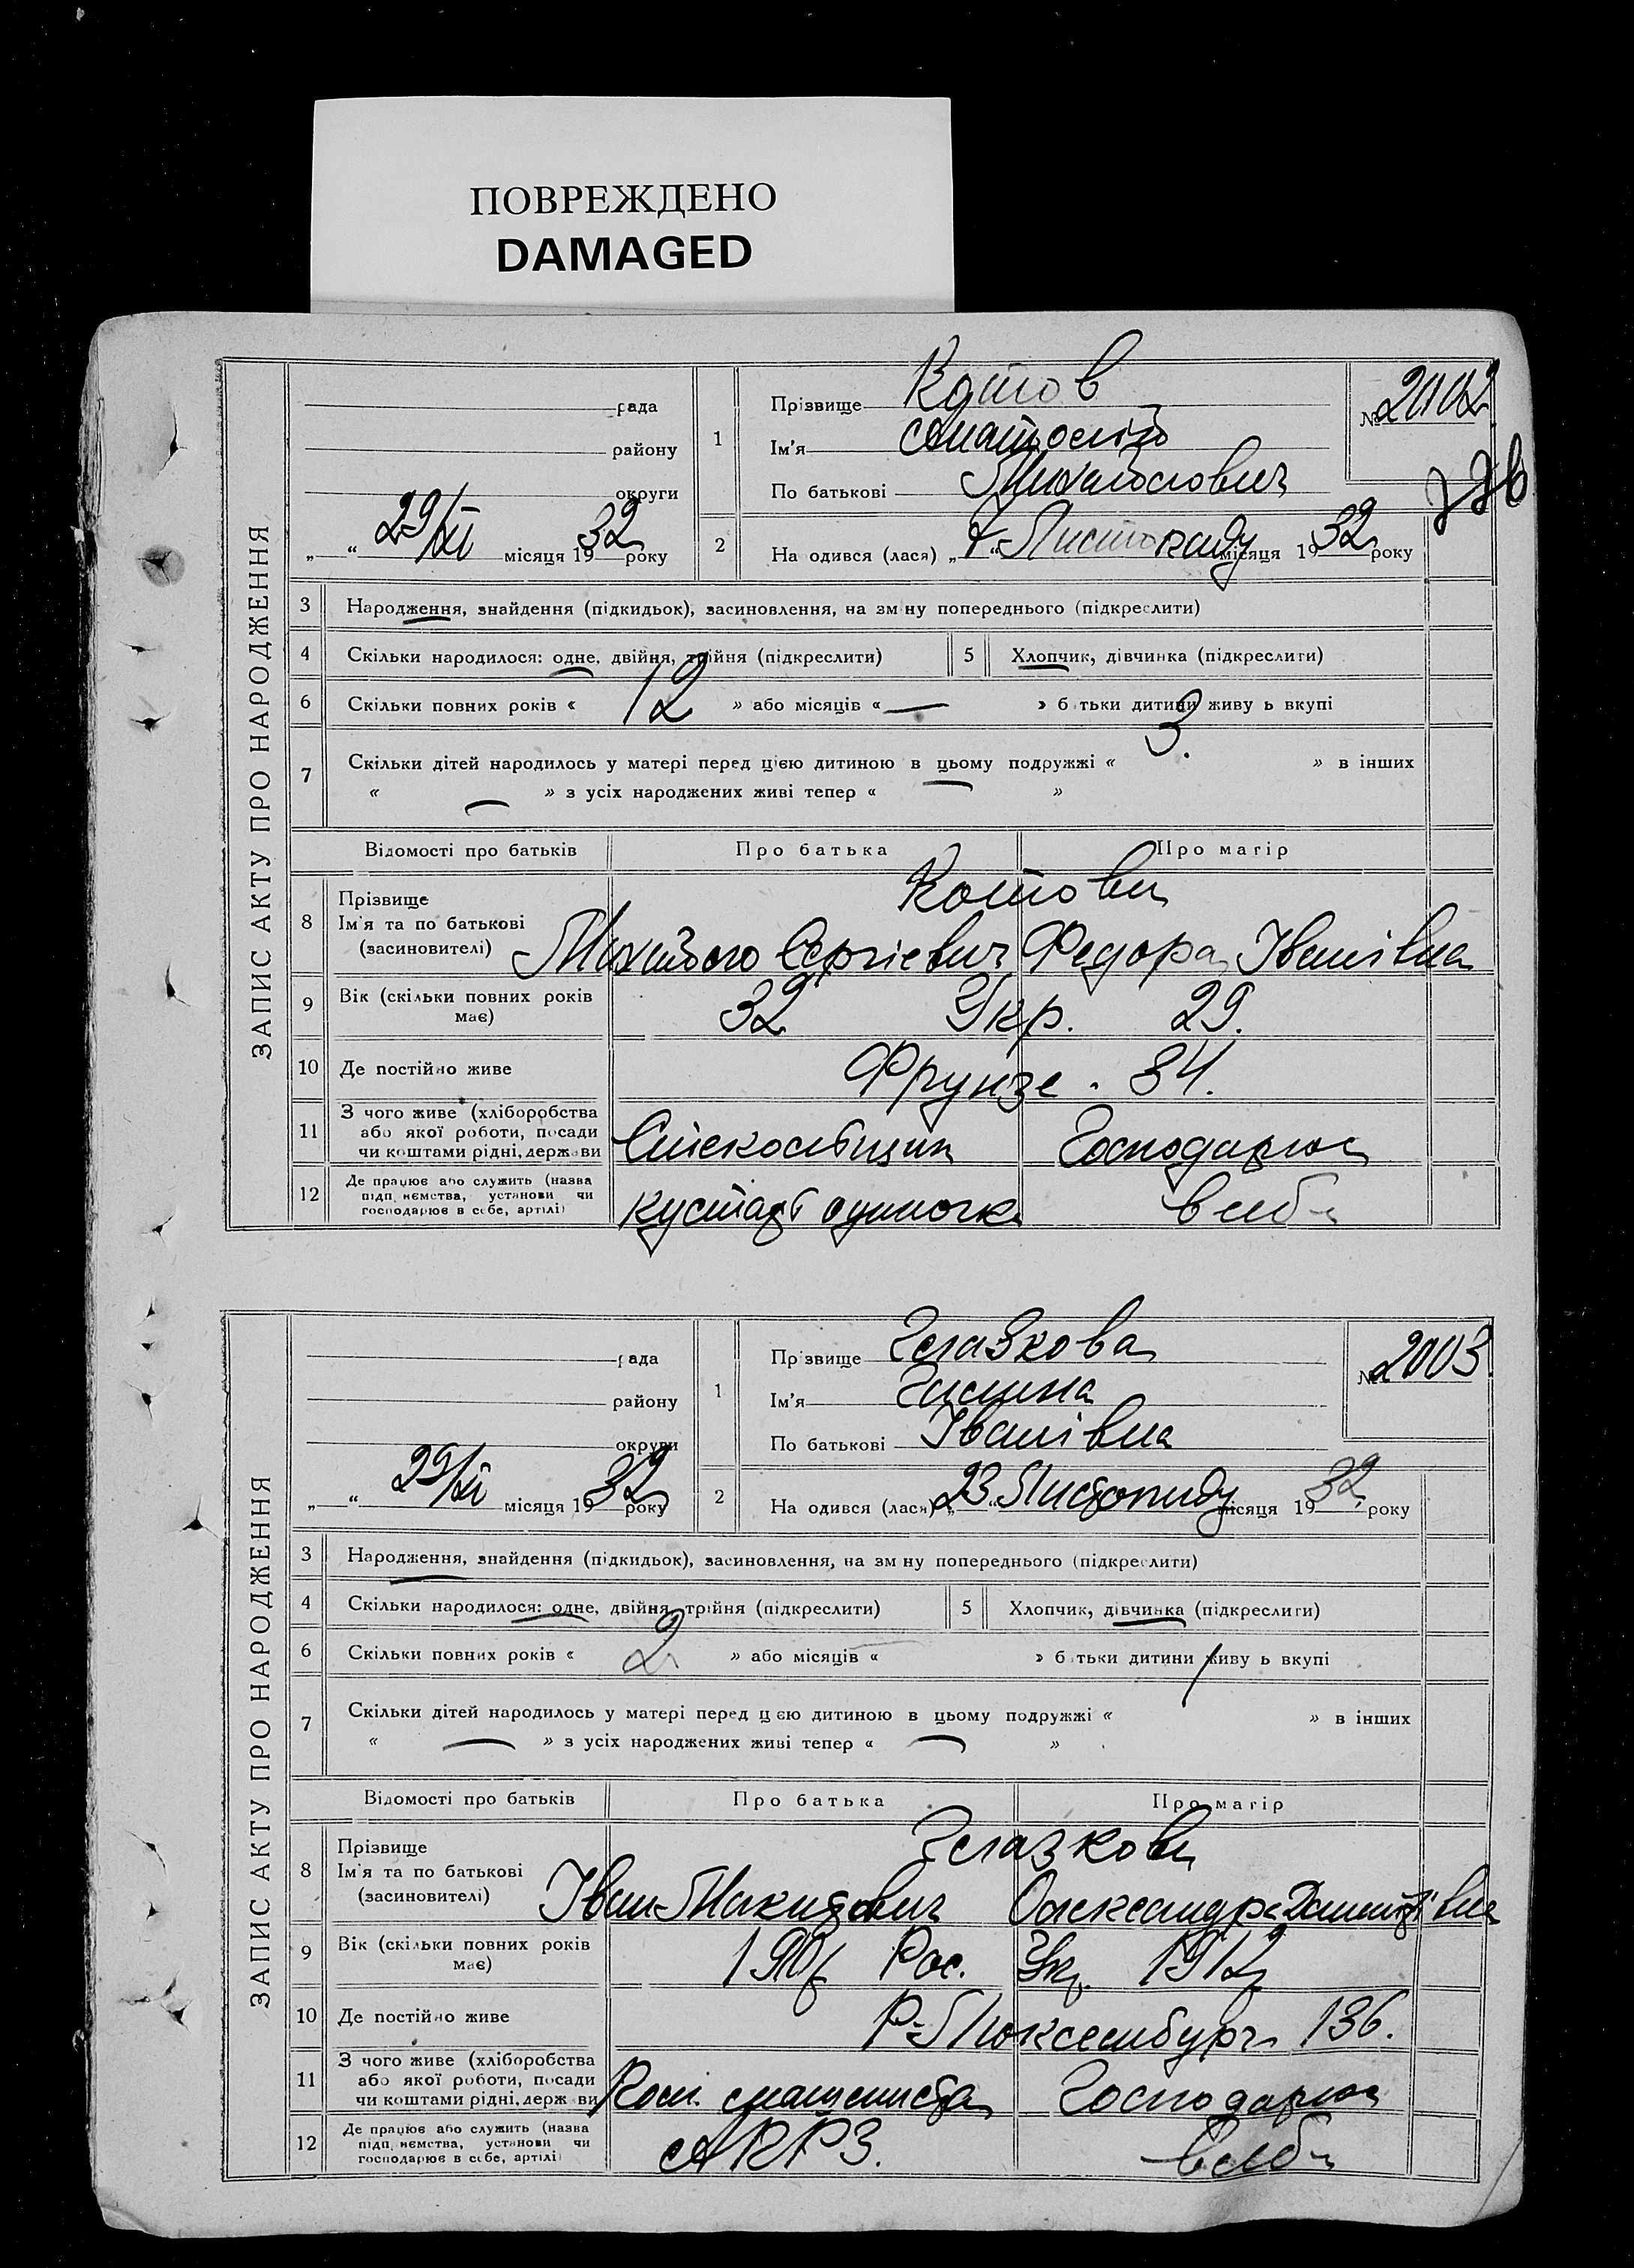 ПОВРЕЖДЕНО
DAMAGED
ЗАПИС АКТУ ПРО НАРОДЖЕННЯ
рада
району
округи
„ “ 29/XI місяця 1932 року
1
Прізвище Котов
Ім'я Анатолій
По батькові Михайлович
№ 2002
2
На одився (лася) „7“ Листопаду місяця 1932 року
3 Народження, знайдення (підкидьок), засиновлення, на зм ну попереднього (підкреслити)
4 Скільки народилося: одне, двійня, трійня (підкреслити)
5 Хлопчик, дівчинка (підкреслити)
6 Скільки повних років « 12 » або місяців « — » б тьки дитини живу ь вкупі
7 Скільки дітей народилось у матері перед цією дитиною в цьому подружжі « 3. » в інших
« — » з усіх народжених живі тепер « — »
Відомості про батьків Про батька Про матір
8 Прізвище Котови
Ім'я та по батькові
(засиновителі) Михайло Сергієвич Федора Іванівна
9 Вік (скільки повних років має) 32 Укр. 29.
10 Де постійно живе Фрунзе. 84.
11 З чого живе (хліборобства
або якої роботи, посади
чи коштами рідні, держави Господарює
12 Де працює або служить (назва
підп иємства, установи чи
господарює в себе, артілі) кустар одиночка
ЗАПИС АКТУ ПРО НАРОДЖЕННЯ
рада
району
округи
„ “ 29/XI місяця 1932 року
1
Пр звище Глазкова
Ім'я
По батькові Іванівна
№ 2003.
2
На одився (лася) „23“ Листопаду місяця 1932 року
3 Народження, знайдення (підкидьок), засиновлення, на зм ну попереднього (підкреслити)
4 Скільки народилося: одне, двійня, трійня (підкреслити)
5 Хлопчик, дівчинка (підкреслити)
6 Скільки повних років « 2 » або місяців « — » б тьки дитини живу ь вкупі
7 Скільки дітей народилось у матері перед ц єю дитиною в цьому подружжі « 1 » в інших
« — » з усіх народжених живі тепер « — »
Відомості про батьків Про батька Про матір
8 Прізвище Глазкови
Ім'я та по батькові
(засиновителі) Іван Олександра
9 Вік (скільки повних років має) Рос. Укр. 1912
10 Де постійно живе Р-Люксембург 136.
11 З чого живе (хліборобства
або якої роботи, посади
чи коштами рідні, держ ви Господарює
12 Де працює або служить (назва
підп иємства, установи чи
господарює в себе, артілі)